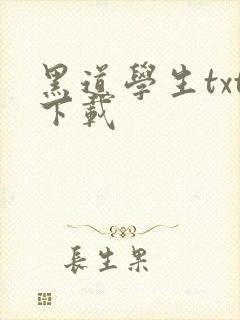 黑道學生txt
下載
長生果